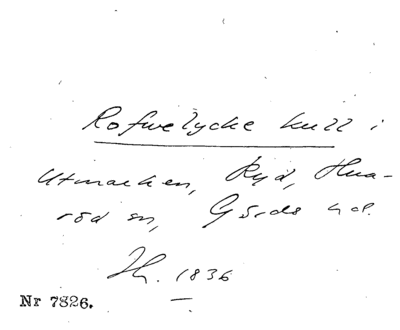 Rofwelycke kull i
Utmarken, Ryd, Hua-
röd sn, Gärds hd.
Jh. 1836
Nr 7826.